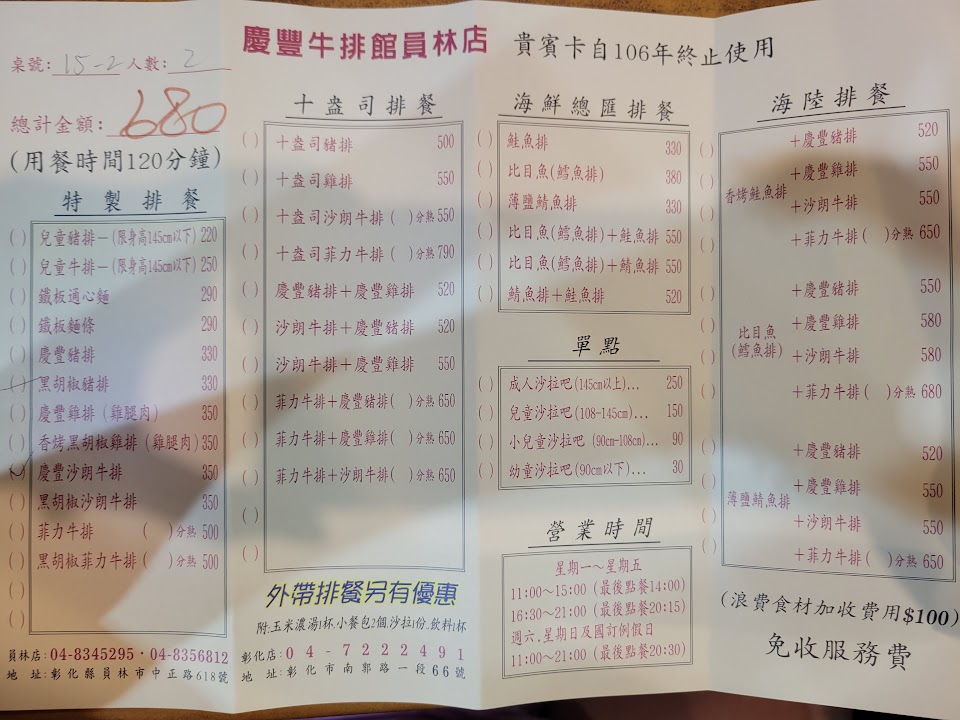 慶豐牛排館員林店
貴賓卡自106年終止使用
桌號: 15-2 人數: 2
總計金額: 680
(用餐時間120分鐘)
特製排餐
( ) 兒童豬排－(限身高145cm以下) 220
( ) 兒童牛排－(限身高145cm以下) 250
( ) 鐵板通心麵 290
( ) 鐵板麵條 290
( ) 慶豐豬排 330
( ) 黑胡椒豬排 330
( ) 慶豐雞排 (雞腿肉) 350
( ) 香烤黑胡椒雞排 (雞腿肉) 350
( ) 慶豐沙朗牛排 350
( ) 黑胡椒沙朗牛排 350
( ) 菲力牛排 ( )分熟 500
( ) 黑胡椒菲力牛排 ( )分熟 500
( )
( )
員林店: 04-8345295・04-8356812
地 址: 彰化縣員林市中正路618號
十盎司排餐
( ) 十盎司豬排 500
( ) 十盎司雞排 550
( ) 十盎司沙朗牛排 ( )分熟 550
( ) 十盎司菲力牛排 ( )分熟 790
( ) 慶豐豬排＋慶豐雞排 520
( ) 沙朗牛排＋慶豐豬排 520
( ) 沙朗牛排＋慶豐雞排 550
( ) 菲力牛排＋慶豐豬排( )分熟 650
( ) 菲力牛排＋慶豐雞排( )分熟 650
( ) 菲力牛排＋沙朗牛排( )分熟 650
( )
( )
外帶排餐另有優惠
附:玉米濃湯1杯.小餐包2個.沙拉1份..飲料1杯
彰化店: 04-7222491
地 址: 彰化市南郭路一段66號
海鮮總匯排餐
( ) 鮭魚排 330
( ) 比目魚(鱈魚排) 380
( ) 薄鹽鯖魚排 330
( ) 比目魚(鱈魚排)＋鮭魚排 550
( ) 比目魚(鱈魚排)＋鯖魚排 550
( ) 鯖魚排＋鮭魚排 520
單點
( ) 成人沙拉吧(145cm以上)... 250
( ) 兒童沙拉吧(108-145cm)... 150
( ) 小兒童沙拉吧 (90cm-108cm)... 90
( ) 幼童沙拉吧(90cm以下)... 30
營業時間
星期一～星期五
11:00～15:00 (最後點餐14:00)
16:30～21:00 (最後點餐20:15)
週六.星期日及國訂例假日
11:00～21:00 (最後點餐20:30)
海陸排餐
香烤鮭魚排
( ) ＋慶豐豬排 520
( ) ＋慶豐雞排 550
( ) ＋沙朗牛排 550
( ) ＋菲力牛排( )分熟 650
比目魚
(鱈魚排)
( ) ＋慶豐豬排 550
( ) ＋慶豐雞排 580
( ) ＋沙朗牛排 580
( ) ＋菲力牛排( )分熟 680
薄鹽鯖魚排
( ) ＋慶豐豬排 520
( ) ＋慶豐雞排 550
( ) ＋沙朗牛排 550
( ) ＋菲力牛排( )分熟 650
(浪費食材加收費用$100)
免收服務費